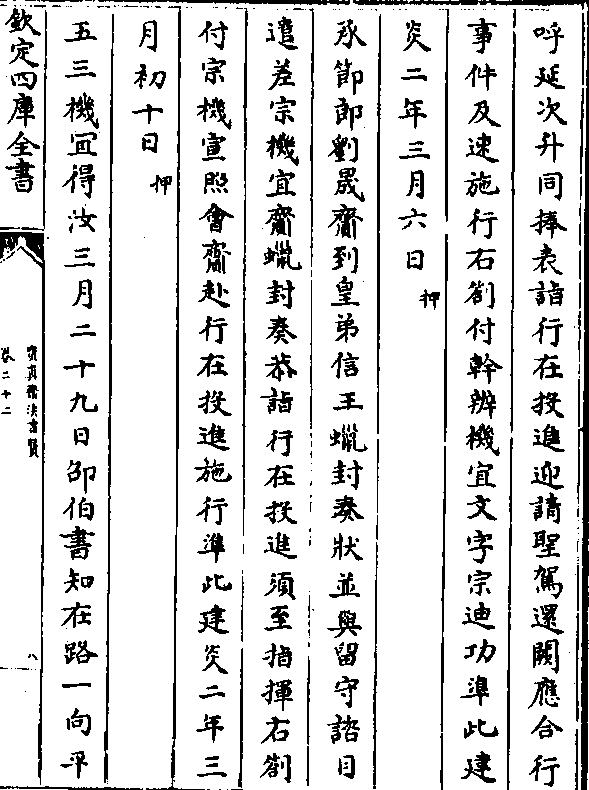 呼延次升同捧表詣行在投進迎請聖駕還闕應合行
事件及速施行右劄付幹辨機宜文字宗迪功準此建
炎二年三月六日押
承節郎劉晟齎到皇弟信王蠟封奏狀並與留守諮目
遣差宗機宜齎蠟封奏恭詣行在投進須至指揮右劄
付宗機宣照會齎赴行在投進施行準此建炎二年三
月初十日押
五三機宜得汝三月二十九日邵伯書知在路一向平
欽定四庫全書
寶真齋法書贊
卷二十二
八